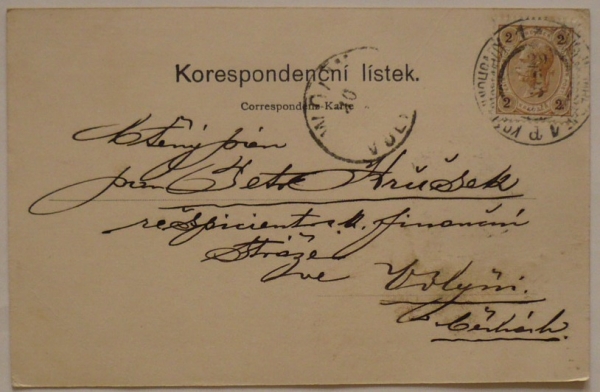 Korespondenční lístek.
Correspondenz-Karte
Ctěný pán
pan Petr Hrůšek
respicient c. k. finanční
stráže
ve Volyni.
v Čechách.
2 2
2 2